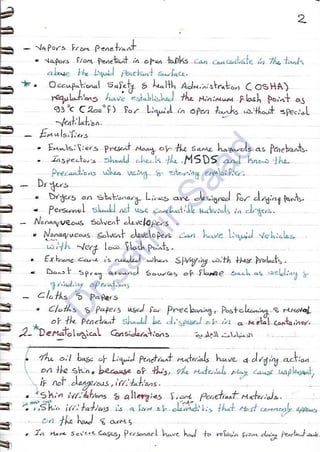 2
- Vapors from Penetrant
• Vapors from Penetrant in open tanks can concentrate in the tank
above the liquid Penetrant surface.
* • Occupational Safety & Health Administration (OSHA)
regulations have established the minimum Flash point as
93°C (200°F) for Liquid in open tanks without special
ventilation.
- Emulsifiers
• Emulsifiers present many of the same hazards as Penetrants.
• Inspectors should check the MSDS and know the
Precautions when using & storing emulsifier.
- Dryers
• Dryers on stationary Lines are designed for drying parts.
• Personnel should not use combustible materials in dryers.
- Nonaqueous Solvent developers
• Nonaqueous Solvent developers can have liquid vehicles
with very low flash points.
• Extreme care is needed when spraying with these products.
• Don't spray around sources of flame such as welding &
grinding operations
- Cloths & Papers
• Cloths & papers used for Precleaning, Postcleaning & removal
of the Penetrant should be disposed of in a Metal container.
2- Dermatological Considerations
• The oil base of liquid penetrant materials have a drying action
on the skin, because of this, the materials may cause unpleasant,
if not dangerous, irritations.
• Skin irritations & allergies from Penetrant materials.
• Skin irritations is a form of dermatitis that most commonly appears
on the hand & arms
• In more severe cases, Personnel have had to refrain from doing Penetrant work.